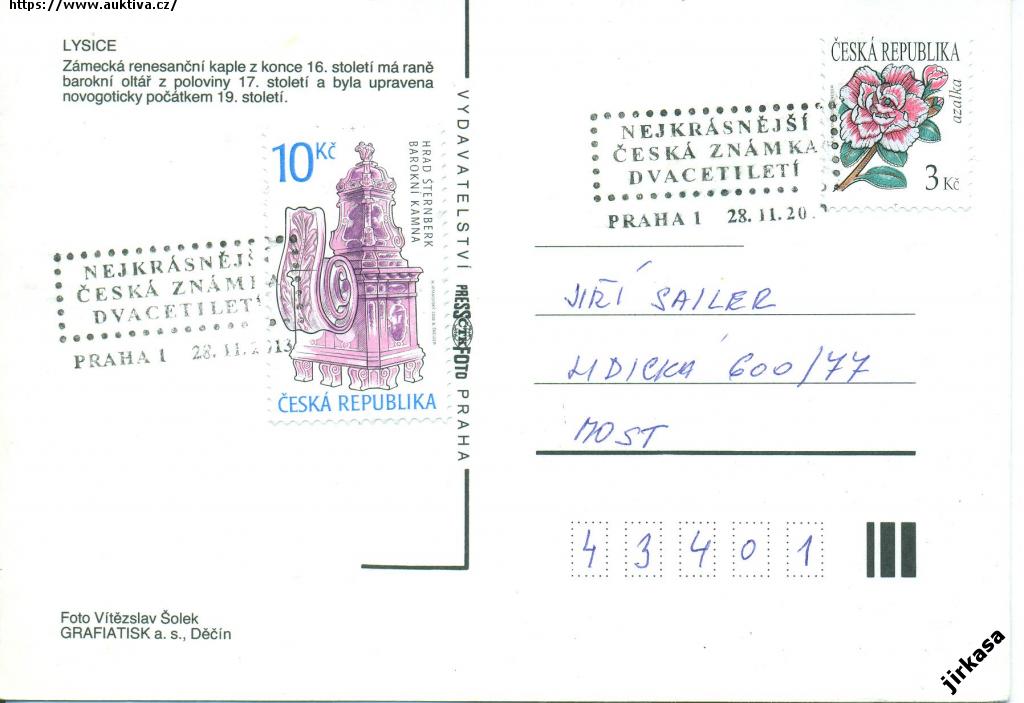 https://www.auktiva.cz/
LYSICE
Zámecká renesanční kaple z konce 16. století má raně
barokní oltář z poloviny 17. století a byla upravena
novogoticky počátkem 19. století.
10 Kč
HRAD ŠTERNBERK
BAROKNÍ KAMNA
ČESKÁ REPUBLIKA
NEJKRÁSNĚJŠ
ČESKÁ ZNÁMKA
DVACETILETÍ
PRAHA 1 28.11.2013
VYDAVATELSTVÍ PRESSFOTO PRAHA
ČTK
ČESKÁ REPUBLIKA
azalka
3 Kč
NEJKRÁSNĚJŠÍ
ČESKÁ ZNÁMKA
DVACETILETÍ
PRAHA 1 28.11.20
JIŘÍ SAILER
LIDICKÁ 600/77
MOST
43401
Foto Vítězslav Šolek
GRAFIATISK a. s., Děčín
jirkasa